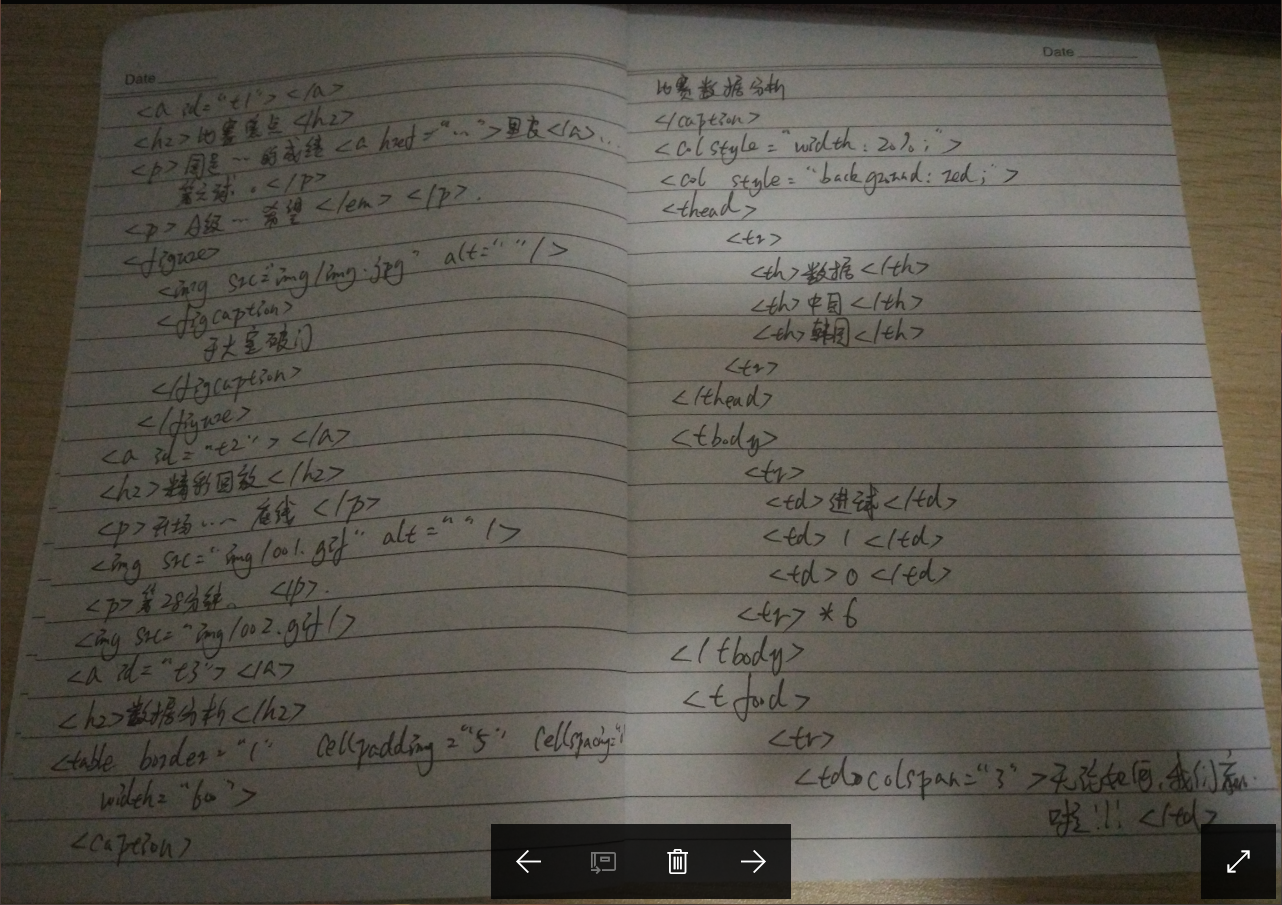 Date
<a id="t1"></a>
<h2>比赛重点</h2>
<p>国足…的成绩<a href="…">里皮</a>…
第之球。</p>
<p>A级…希望</em></p>.
<figure>
<img src="img/img.jpg" alt=""/>
<figcaption>
于大宝破门
</figcaption>
</figure>
<a id="t2"></a>
<h2>精彩回放</h2>
<p>开场…底线</p>
<img src="img/001.gif" alt=""/>
<p>第28分钟…</p>.
<img src="img/002.gif/>
<a id="t3"></a>
<h2>数据分析</h2>
<table border="1" cellpadding="5" cellspacing="
width="60">
<caption>
Date
比赛数据分析
</caption>
<col style="width:20%;">
<col style="background:red;">
<thead>
<tr>
<th>数据</th>
<th>中国</th>
<th>韩国</th>
<tr>
</thead>
<tbody>
<tr>
<td>进球</td>
<td>1</td>
<td>0</td>
<tr>*6
</tbody>
<tfood>
<tr>
<td>colspan="3">无论如何,我们
啦!!!</td>